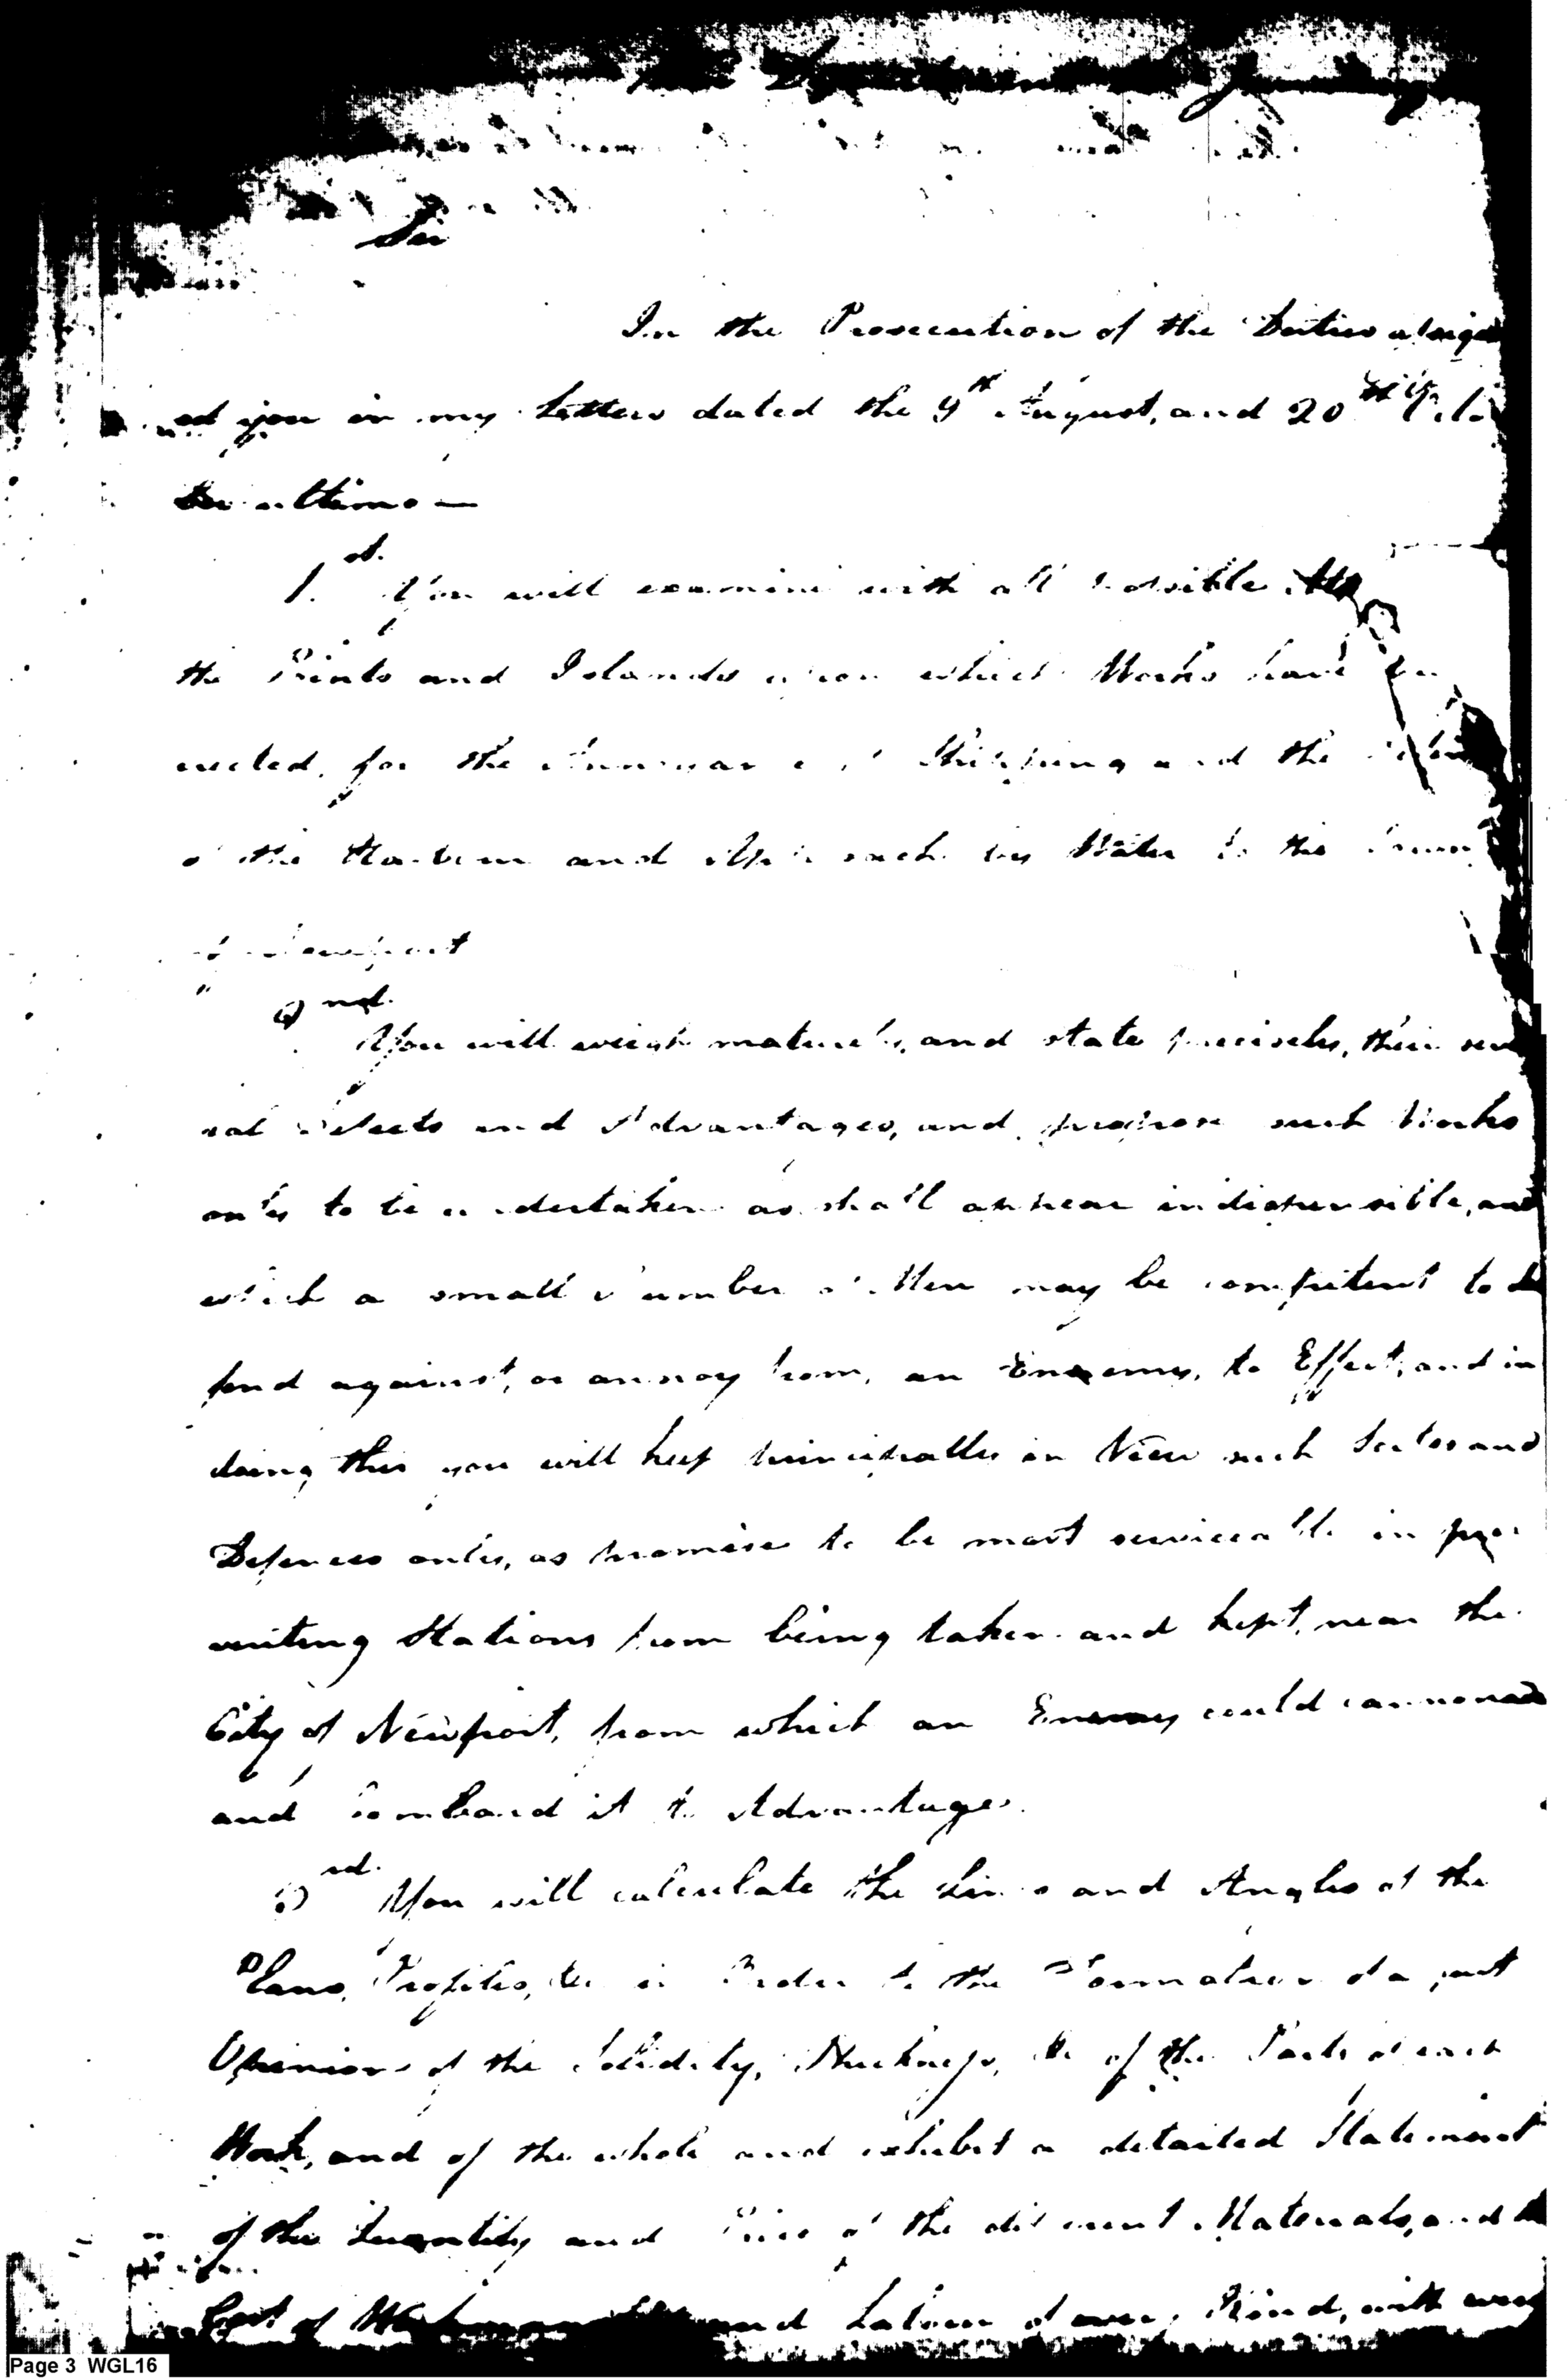 Sir
In the Prosecution of the Duties assign
ed you in my Letters dated the 9th August, and 20th
ultimo —
1st. You will examine with all possible
the Points and Islands upon which Works have been
erected, for the Annoyance of Shipping and the
of the Harbour and Approach by Water to the Town
of Newport
2nd.
You will weigh maturely, and state precisely, their seve
ral Defects and Advantages, and propose such Works
only to be undertaken as shall appear indispensible, and
which a small Number of Men may be competent to de
fend against, or annoy from, an Enemy, to Effect, and in
doing this you will keep principally in View such Scites and
Defences only, as promise to be most serviceable in pre
venting Stations from being taken and kept, near the
City of Newport, from which an Enemy could cannonade
and bombard it to Advantage.
3rd. You will calculate the Lines and Angles of the
Plans, Profiles, &c in Order to the Formation of a just
Opinion of the Solidity, Thickness, &c of the Parts of each
Work, and of the whole and exhibit a detailed Statement
of the Quantity and Price of the different Materials, and
Cost of and Labour of every Kind, with
Page 3 WGL16